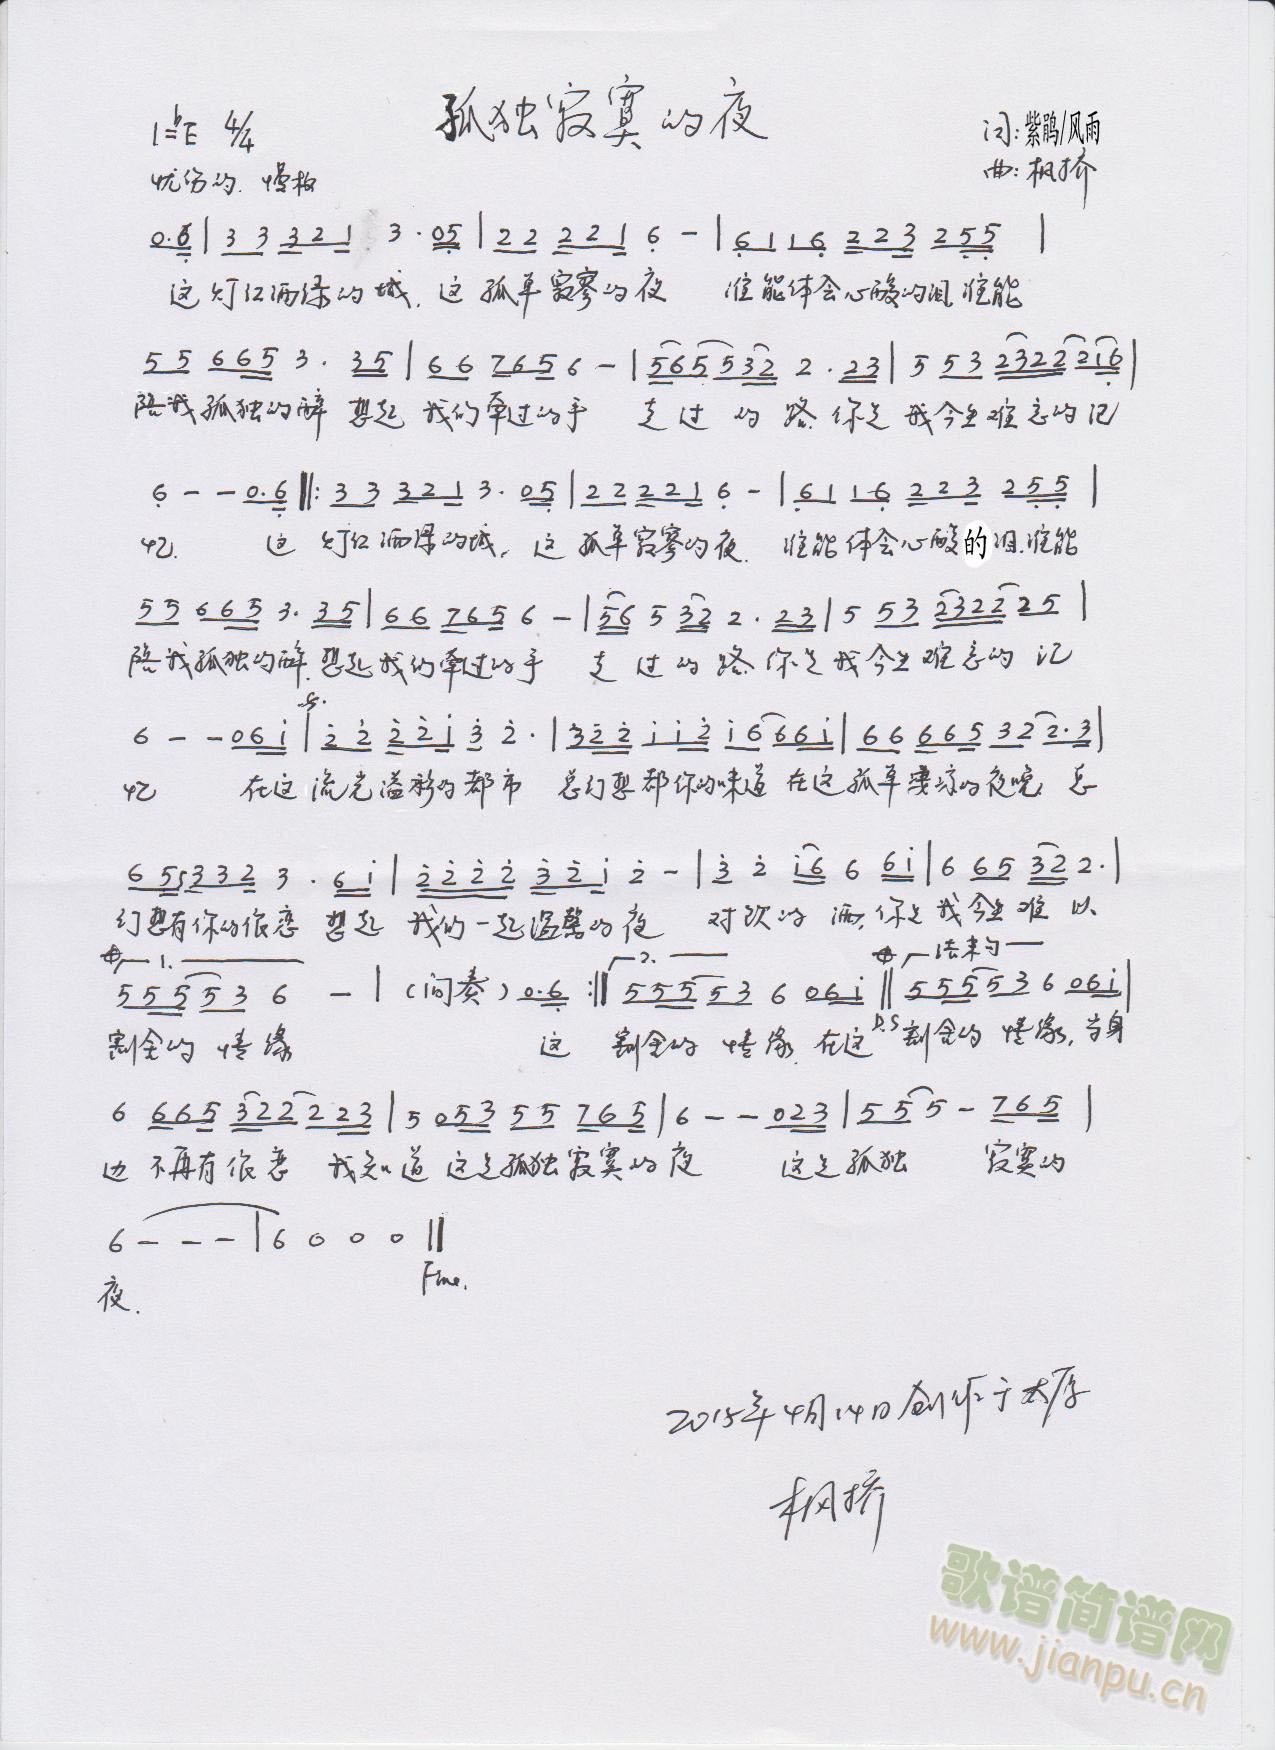 孤独寂寞的夜
1=♭E 4/4
词:紫鹃/风雨
忧伤的.慢板
曲:枫桥
0.6 | 3 3 3 2 1 3 . 0 5 | 2 2 2 2 1 6 - | 6 1 1 6 2 2 3 2 5 5 |
这灯红酒绿的城,这孤单寂寥的夜 谁能体会心酸的泪,谁能
5 5 6 6 5 3 . 3 5 | 6 6 7 6 5 6 - | 5 6 5 5 3 2 2 . 2 3 | 5 5 3 2 3 2 2 2 1 6 |
陪我孤独的醉 想起我们牵过的手 走过的路.你是我今生难忘的记
6 - - 0.6 ‖: 3 3 3 2 1 3 . 0 5 | 2 2 2 2 1 6 - | 6 1 1 6 2 2 3 2 5 5 |
忆. 这灯红酒绿的城,这孤单寂寥的夜.谁能体会心酸的泪.谁能
5 5 6 6 5 3 . 3 5 | 6 6 7 6 5 6 - | 5 6 5 3 2 2 . 2 3 | 5 5 3 2 3 2 2 2 5 |
陪我孤独的醉.想起我们牵过的手 走过的路.你是我今生难忘的记
6 - - 0 6 i | 2 2 2 2 i 3 2 . | 3 2 2 i i 2 i 6 6 6 i | 6 6 6 6 5 3 2 2 . 3 |
忆 在这流光溢彩的都市 总幻想都你的味道在这孤单凄凉的夜晚.总
6 5 5 3 3 2 3 . 6 i | 2 2 2 2 3 2 i 2 - | 3 2 i 6 6 6 i | 6 6 5 3 2 2 . |
幻想有你的依恋 想起我们一起温馨的夜 对饮的酒.你是我今生难以
1. 2. 结束句
5 5 5 5 3 6 - | (间奏) 0.6 :‖ 5 5 5 5 3 6 0 6 i ‖ 5 5 5 5 3 6 0 6 i |
D.S
割舍的情缘 这 割舍的情缘.在这 割舍的情缘,当身
6 6 6 5 3 2 2 2 2 3 | 5 0 5 3 5 5 7 6 5 | 6 - - 0 2 3 | 5 5 5 - 7 6 5 |
边不再有依恋 我知道这是孤独寂寞的夜 这是孤独 寂寞的
6 - - - | 6 0 0 0 ‖
夜. Fine.
2015年4月14日创作于太原
枫桥
歌谱简谱网
www.jianpu.cn